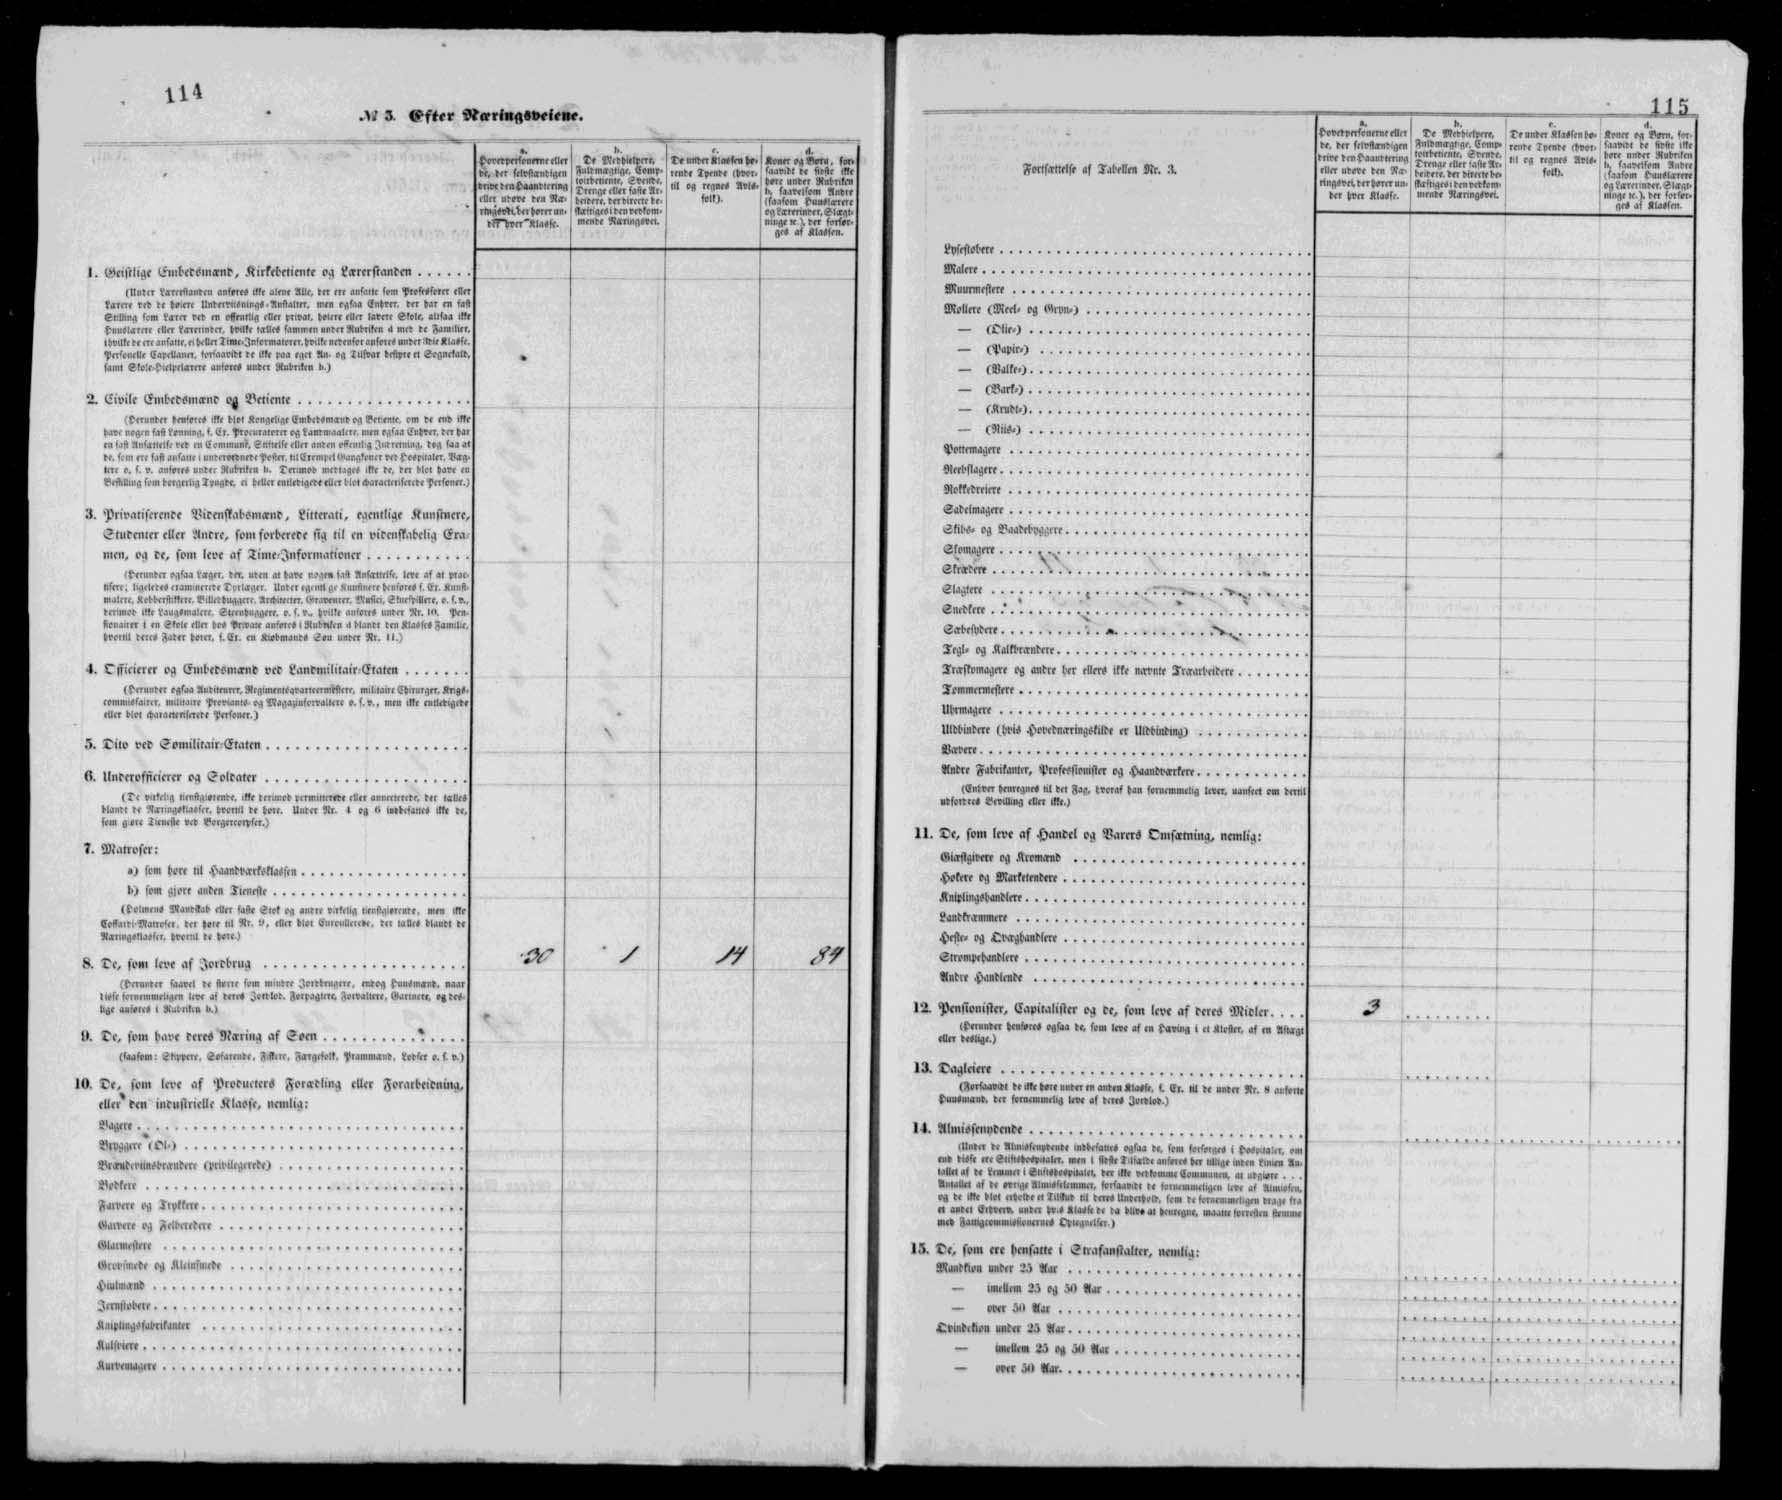 114
№ 3. Efter Næringsveiene.
a.
Hovedpersonerne eller
de, der selvstændigen
drive den Haandtering
eller udøve den Næ-
ringsvei, der hører un-
der hver Klasse.
b.
De Medhjelpere,
Fuldmægtige, Comp-
toirbetiente, Svende,
Drenge eller faste Ar-
beidere, der directe be-
skæftiges i den vedkom-
mende Næringsvei.
c.
De under Klassen hø-
rende Tyende (hvor-
til og regnes Avls-
folk).
d.
Koner og Børn, for-
saavidt de sidste ikke
høre under Rubriken
b, saavelsom Andre
(saasom Huuslærere
og Lærerinder, Slægt-
ninge ꝛc.), der forsør-
ges af Klassen.
1. Geistlige Embedsmænd, Kirkebetiente og Lærerstanden
(Under Lærerstanden anføres ikke alene Alle, der ere ansatte som Professorer eller
Lærere ved de høiere Underviisnings-Anstalter, men ogsaa Enhver, der har en fast
Stilling som Lærer ved en offentlig eller privat, høiere eller lavere Skole, altsaa ikke
Huuslærere eller Lærerinder, hvilke tælles sammen under Rubriken d med de Familier,
i hvilke de ere ansatte, ei heller Time-Informatorer, hvilke nedenfor anføres under 3die Klasse.
Personelle Capellaner, forsaavidt de ikke paa eget An- og Tilsvar bestyre et Sognekald,
samt Skole-Hielpelærere anføres under Rubriken b.)
2. Civile Embedsmænd og Betiente
(Herunder henføres ikke blot Kongelige Embedsmænd og Betiente, om de end ikke
have nogen fast Lønning, f. Ex. Procuratorer og Landmaalere, men ogsaa Enhver, der har
en fast Ansættelse ved en Commune, Stiftelse eller anden offentlig Indretning, dog saa at
de, som ere fast ansatte i underordnede Poster, til Exempel Gangkoner ved Hospitaler, Væg-
tere o. s. v. anføres under Rubriken b. Derimod medtages ikke de, der blot have en
Bestilling som borgerlig Tyngde, ei heller entledigede eller blot characteriserede Personer.)
3. Privatiserende Videnskabsmænd, Litterati, egentlige Kunstnere,
Studenter eller Andre, som forberede sig til en videnskabelig Exa-
men, og de, som leve af Time-Informationer
(Herunder ogsaa Læger, der, uden at have nogen fast Ansættelse, leve af at prac-
tisere; ligeledes examinerede Dyrlæger. Under egentlige Kunstnere henføres f. Ex. Kunst-
malere, Kobberstikkere, Billedhuggere, Architecter, Graveurer, Musici, Skuespillere, o. s. v.,
derimod ikke Laugsmalere, Steenhuggere, o. s. v., hvilke anføres under Nr. 10. Pen-
sionairer i en Skole eller hos Private anføres i Rubriken d blandt den Klasses Familie,
hvortil deres Fader hører, f. Ex. en Kiøbmands Søn under Nr. 11.)
4. Officierer og Embedsmænd ved Landmilitair-Etaten
(Herunder ogsaa Auditeurer, Regimentsqvarteermestere, militaire Chirurger, Krigs-
commissairer, militaire Proviants- og Magazinforvaltere o. s. v., men ikke entledigede
eller blot characteriserede Personer.)
5. Dito ved Sømilitair-Etaten
6. Underofficierer og Soldater
(De virkelig tienstgiørende, ikke derimod permitterede eller annecterede, der tælles
blandt de Næringsklasser, hvortil de høre. Under Nr. 4 og 6 indbefattes ikke de,
som giøre Tieneste ved Borgercorpser.)
7. Matroser:
a) som høre til Haandværksklassen
b) som gjøre anden Tieneste
(Holmens Mandskab eller faste Stok og andre virkelig tienstgiørende, men ikke
Coffardi-Matroser, der høre til Nr. 9, eller blot Enroullerede, der tælles blandt de
Næringsklasser, hvortil de høre.)
8. De, som leve af Jordbrug 30 1 14 84
(Herunder saavel de større som mindre Jordbrugere, endog Huusmænd, naar
disse fornemmeligen leve af deres Jordlod. Forpagtere, Forvaltere, Gartnere, og des-
lige anføres i Rubriken b.)
9. De, som have deres Næring af Søen
(saasom: Skippere, Søfarende, Fiskere, Færgefolk, Prammænd, Lodser o. s. v.)
10. De, som leve af Producters Forædling eller Forarbeidning,
eller den industrielle Klasse, nemlig:
Bagere
Bryggere (Øl-)
Brændeviinsbrændere (privilegerede)
Bødkere
Farvere og Trykkere
Garvere og Felberedere
Glarmestere
Grovsmede og Kleinsmede
Hiulmænd
Jernstøbere
Kniplingsfabrikanter
Kulsviere
Kurvemagere
115
Fortsættelse af Tabellen Nr. 3.
a.
Hovedpersonerne eller
de, der selvstændigen
drive den Haandtering
eller udøve den Næ-
ringsvei, der hører un-
der hver Klasse.
b.
De Medhjelpere,
Fuldmægtige, Comp-
toirbetiente, Svende,
Drenge eller faste Ar-
beidere, der directe be-
skæftiges i den vedkom-
mende Næringsvei.
c.
De under Klassen hø-
rende Tyende (hvor-
til og regnes Avls-
folk).
d.
Koner og Børn, for-
saavidt de sidste ikke
høre under Rubriken
b, saavelsom Andre
(saasom Huuslærere
og Lærerinder, Slægt-
ninge ꝛc.), der forsør-
ges af Klassen.
Lysestøbere
Malere
Muurmestere
Møllere (Meel- og Gryn-)
— (Olie-)
— (Papir-)
— (Valke-)
— (Bark-)
— (Krudt-)
— (Riis-)
Pottemagere
Reebslagere
Rokkedreiere
Sadelmagere
Skibs- og Baadebyggere
Skomagere
Skrædere
Slagtere
Snedkere
Sæbesydere
Tegl- og Kalkbrændere
Træskomagere og andre her ellers ikke nævnte Træarbeidere
Tømmermestere
Uhrmagere
Uldbindere (hvis Hovednæringskilde er Uldbinding)
Vævere
Andre Fabrikanter, Professionister og Haandværkere
(Enhver henregnes til det Fag, hvoraf han fornemmelig lever, uanseet om dertil
udfordres Bevilling eller ikke.)
11. De, som leve af Handel og Varers Omsætning, nemlig:
Giæstgivere og Kromænd
Høkere og Marketendere
Kniplingshandlere
Landkræmmere
Heste- og Qvæghandlere
Strømpehandlere
Andre Handlende
12. Pensionister, Capitalister og de, som leve af deres Midler 3
(Herunder henføres ogsaa de, som leve af en Hæving i et Kloster, af en Aftægt
eller deslige.)
13. Dagleiere
(Forsaavidt de ikke høre under en anden Klasse, f. Ex. til de under Nr. 8 anførte
Huusmænd, der fornemmelig leve af deres Jordlod.)
14. Almissenydende
(Under de Almissenydende indbefattes ogsaa de, som forsørges i Hospitaler, om
end disse ere Stiftshospitaler, men i sidste Tilfælde anføres her tillige inden Linien An-
tallet af de Lemmer i Stiftshospitalet, der ikke vedkomme Communen, at udgiøre . . .
Antallet af de øvrige Almisselemmer, forsaavidt de fornemmeligen leve af Almissen,
og de ikke blot erholde et Tilskud til deres Underhold, som de fornemmeligen drage fra
et andet Erhverv, under hvis Klasse de da blive at henregne, maatte forresten stemme
med Fattigcommissionernes Optegnelser.)
15. De, som ere hensatte i Strafanstalter, nemlig:
Mandkiøn under 25 Aar
— imellem 25 og 50 Aar
— over 50 Aar
Qvindekiøn under 25 Aar
— imellem 25 og 50 Aar
— over 50 Aar.